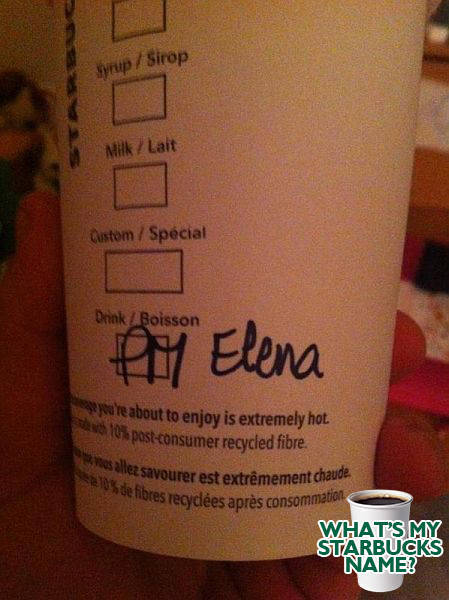 STARBUC
Syrup / Sirop
Milk / Lait
Custom / Spécial
Drink / Boisson
PM Elena
you're about to enjoy is extremely hot.
made with 10% post-consumer recycled fibre.
que vous allez savourer est extrêmement chaude.
de 10 % de fibres recyclées après consommation.
WHAT'S MY
STARBUCKS
NAME?